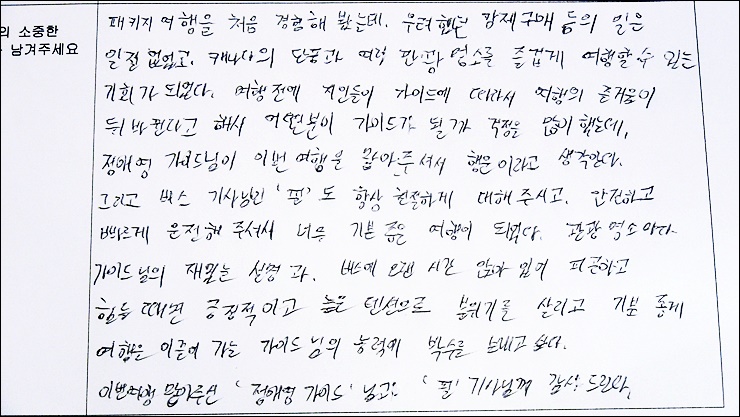 의 소중한
남겨주세요
패키지 여행을 처음 경험해 봤는데. 우려했던 강제구매 등의 일은
일절 없었고. 캐나다의 단풍과 여러 관광 명소를 즐겁게 여행할 수 있는
기회가 되었다. 여행 전에 지인들이 가이드에 따라서 여행의 즐거움이
뒤바뀐다고 해서 어떤분이 가이드가 될까 걱정을 많이 했는데,
정애영 가이드님이 이번 여행을 맡아주셔서 행운이라고 생각한다.
그리고 버스 기사님인 '필'도 항상 친절하게 대해 주시고. 안전하고
빠르게 운전해 주셔서 너무 기분 좋은 여행이 되었다. 관광 명소마다
가이드님의 재밌는 설명과. 버스에 오랜 시간 앉아 있어 피곤하고
힘들 때면 긍정적이고 높은 텐션으로 분위기를 살리고 기분 좋게
여행을 이끌어 가는 가이드님의 능력에 박수를 보내고 싶다.
이번여행 맡아주신 '정애영 가이드'님과 '필' 기사님께 감사드린다.